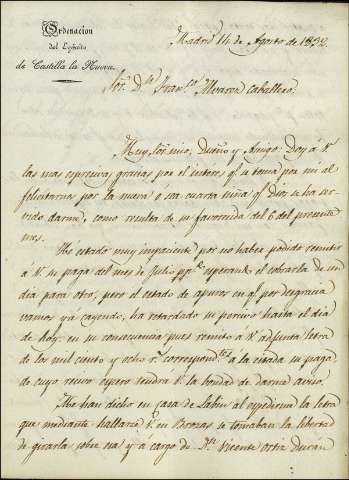 Ordenacion
del Ejército
de Castilla la Nueva.
Madrid 14 de Agosto de 1832.
Sor. Dn. Franco. Alvarez Caballero.
Muy Sor. mio, Dueño y Amigo: Doy á V.
las mas espresivas gracias por el interes qe. se toma por mí al
felicitarme por la nueva ó sea cuarta niña qe. Dios se ha ser-
vido darme, como resulta de su favorecida del 6 del presente
mes.
He estado muy impaciente por no haber podido remitir
á V. su paga del mes de Julio ppdo. esperando el cobrarla de un
dia para otro, pero el estado de apuros en qe. por desgracia
vamos ya cayendo, ha retardado su percivo hasta el dia
de hoy. en su consecuencia pues remito á V. adjunta letra
de los mil ciento y ocho rs. correspondtes. á la citada su paga
de cuyo recivo espero tendrá V. la bondad de darme aviso.
Me han dicho en casa de Sabin al espedirme la letra
que mediante hallarse V. en Brozas se tomaban la libertad
de girarla sobre sí y á cargo de Dn. Vicente Ortiz Durán